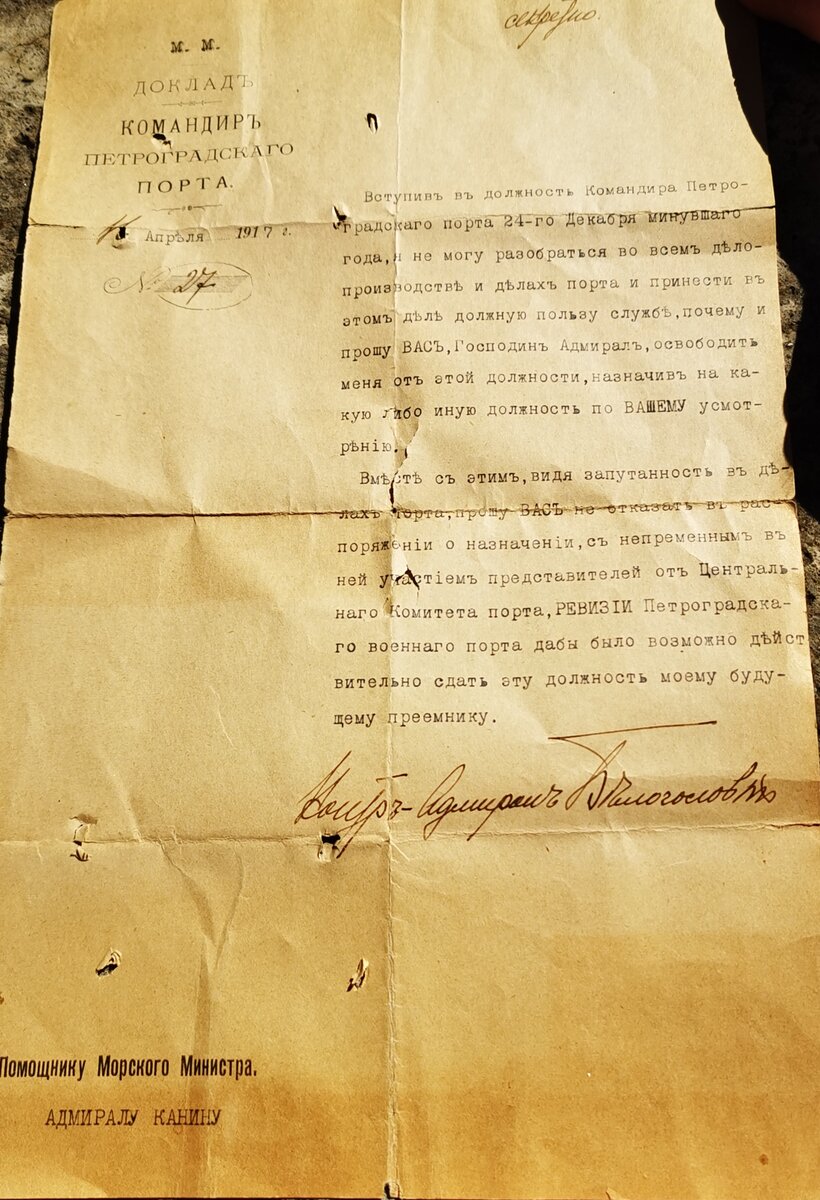 секретно.
М. М.
ДОКЛАДЪ
КОМАНДИРЪ
ПЕТРОГРАДСКАГО
ПОРТА.
Апрѣля 1917 г.
№ 27
Вступив въ должность Командира Петро-
градскаго порта 24-го Декабря минувшаго
года,я не могу разобраться во всемъ дѣло-
производствѣ и дѣлахъ порта и принести въ
этомъ дѣлѣ должную пользу службѣ,почему и
прошу ВАСЪ,Господинъ Адмиралъ,освободить
меня отъ этой должности,назначивъ на ка-
кую либо иную должность по ВАШЕМУ усмот-
рѣнію.
Вмѣстѣ съ этимъ,видя запутанность въ дѣ-
лахъ порта,прошу ВАСЪ не отказать въ рас-
поряженіи о назначеніи,съ непременнымъ въ
ней участіемъ представителей отъ Централь-
наго Комитета порта,РЕВИЗІИ Петроградска-
го военнаго порта дабы было возможно дѣйст
вительно сдать эту должность моему буду-
щему преемнику.
Контръ-Адмиралъ Бѣлоголовый
Помощнику Морского Министра.
АДМИРАЛУ КАНИНУ